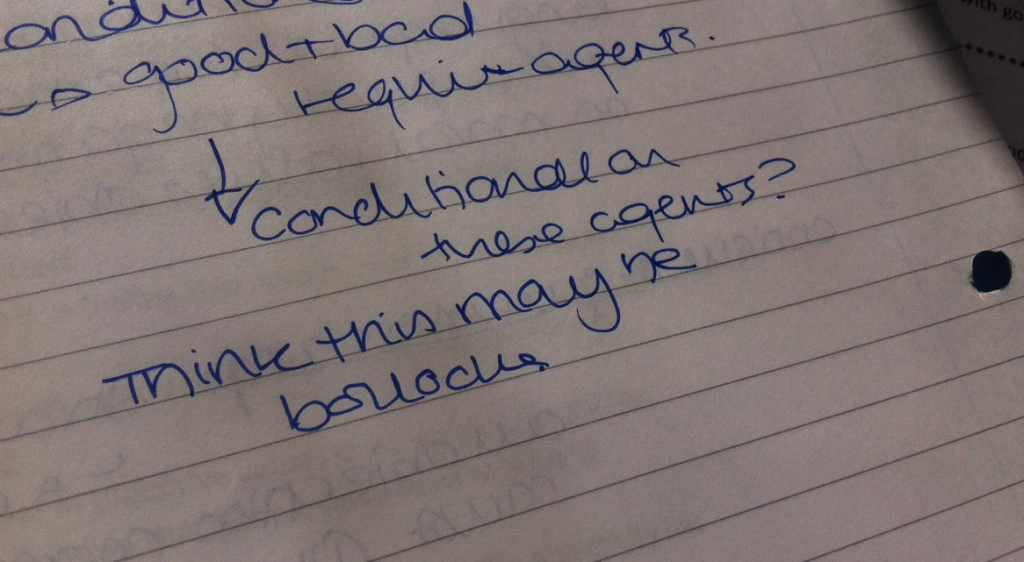 → good + bad
require agents.
↓ conditional on
these agents?
Think this may be
bollocks
with go